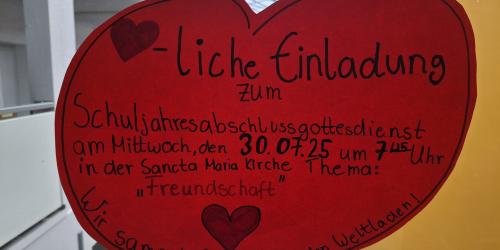 -liche Einladung
zum
Schuljahresabschlussgottesdienst
am Mittwoch, den 30.07.25 um 7:45 Uhr
in der Sancta Maria Kirche Thema:
"Freundschaft"
Wir Weltladen!